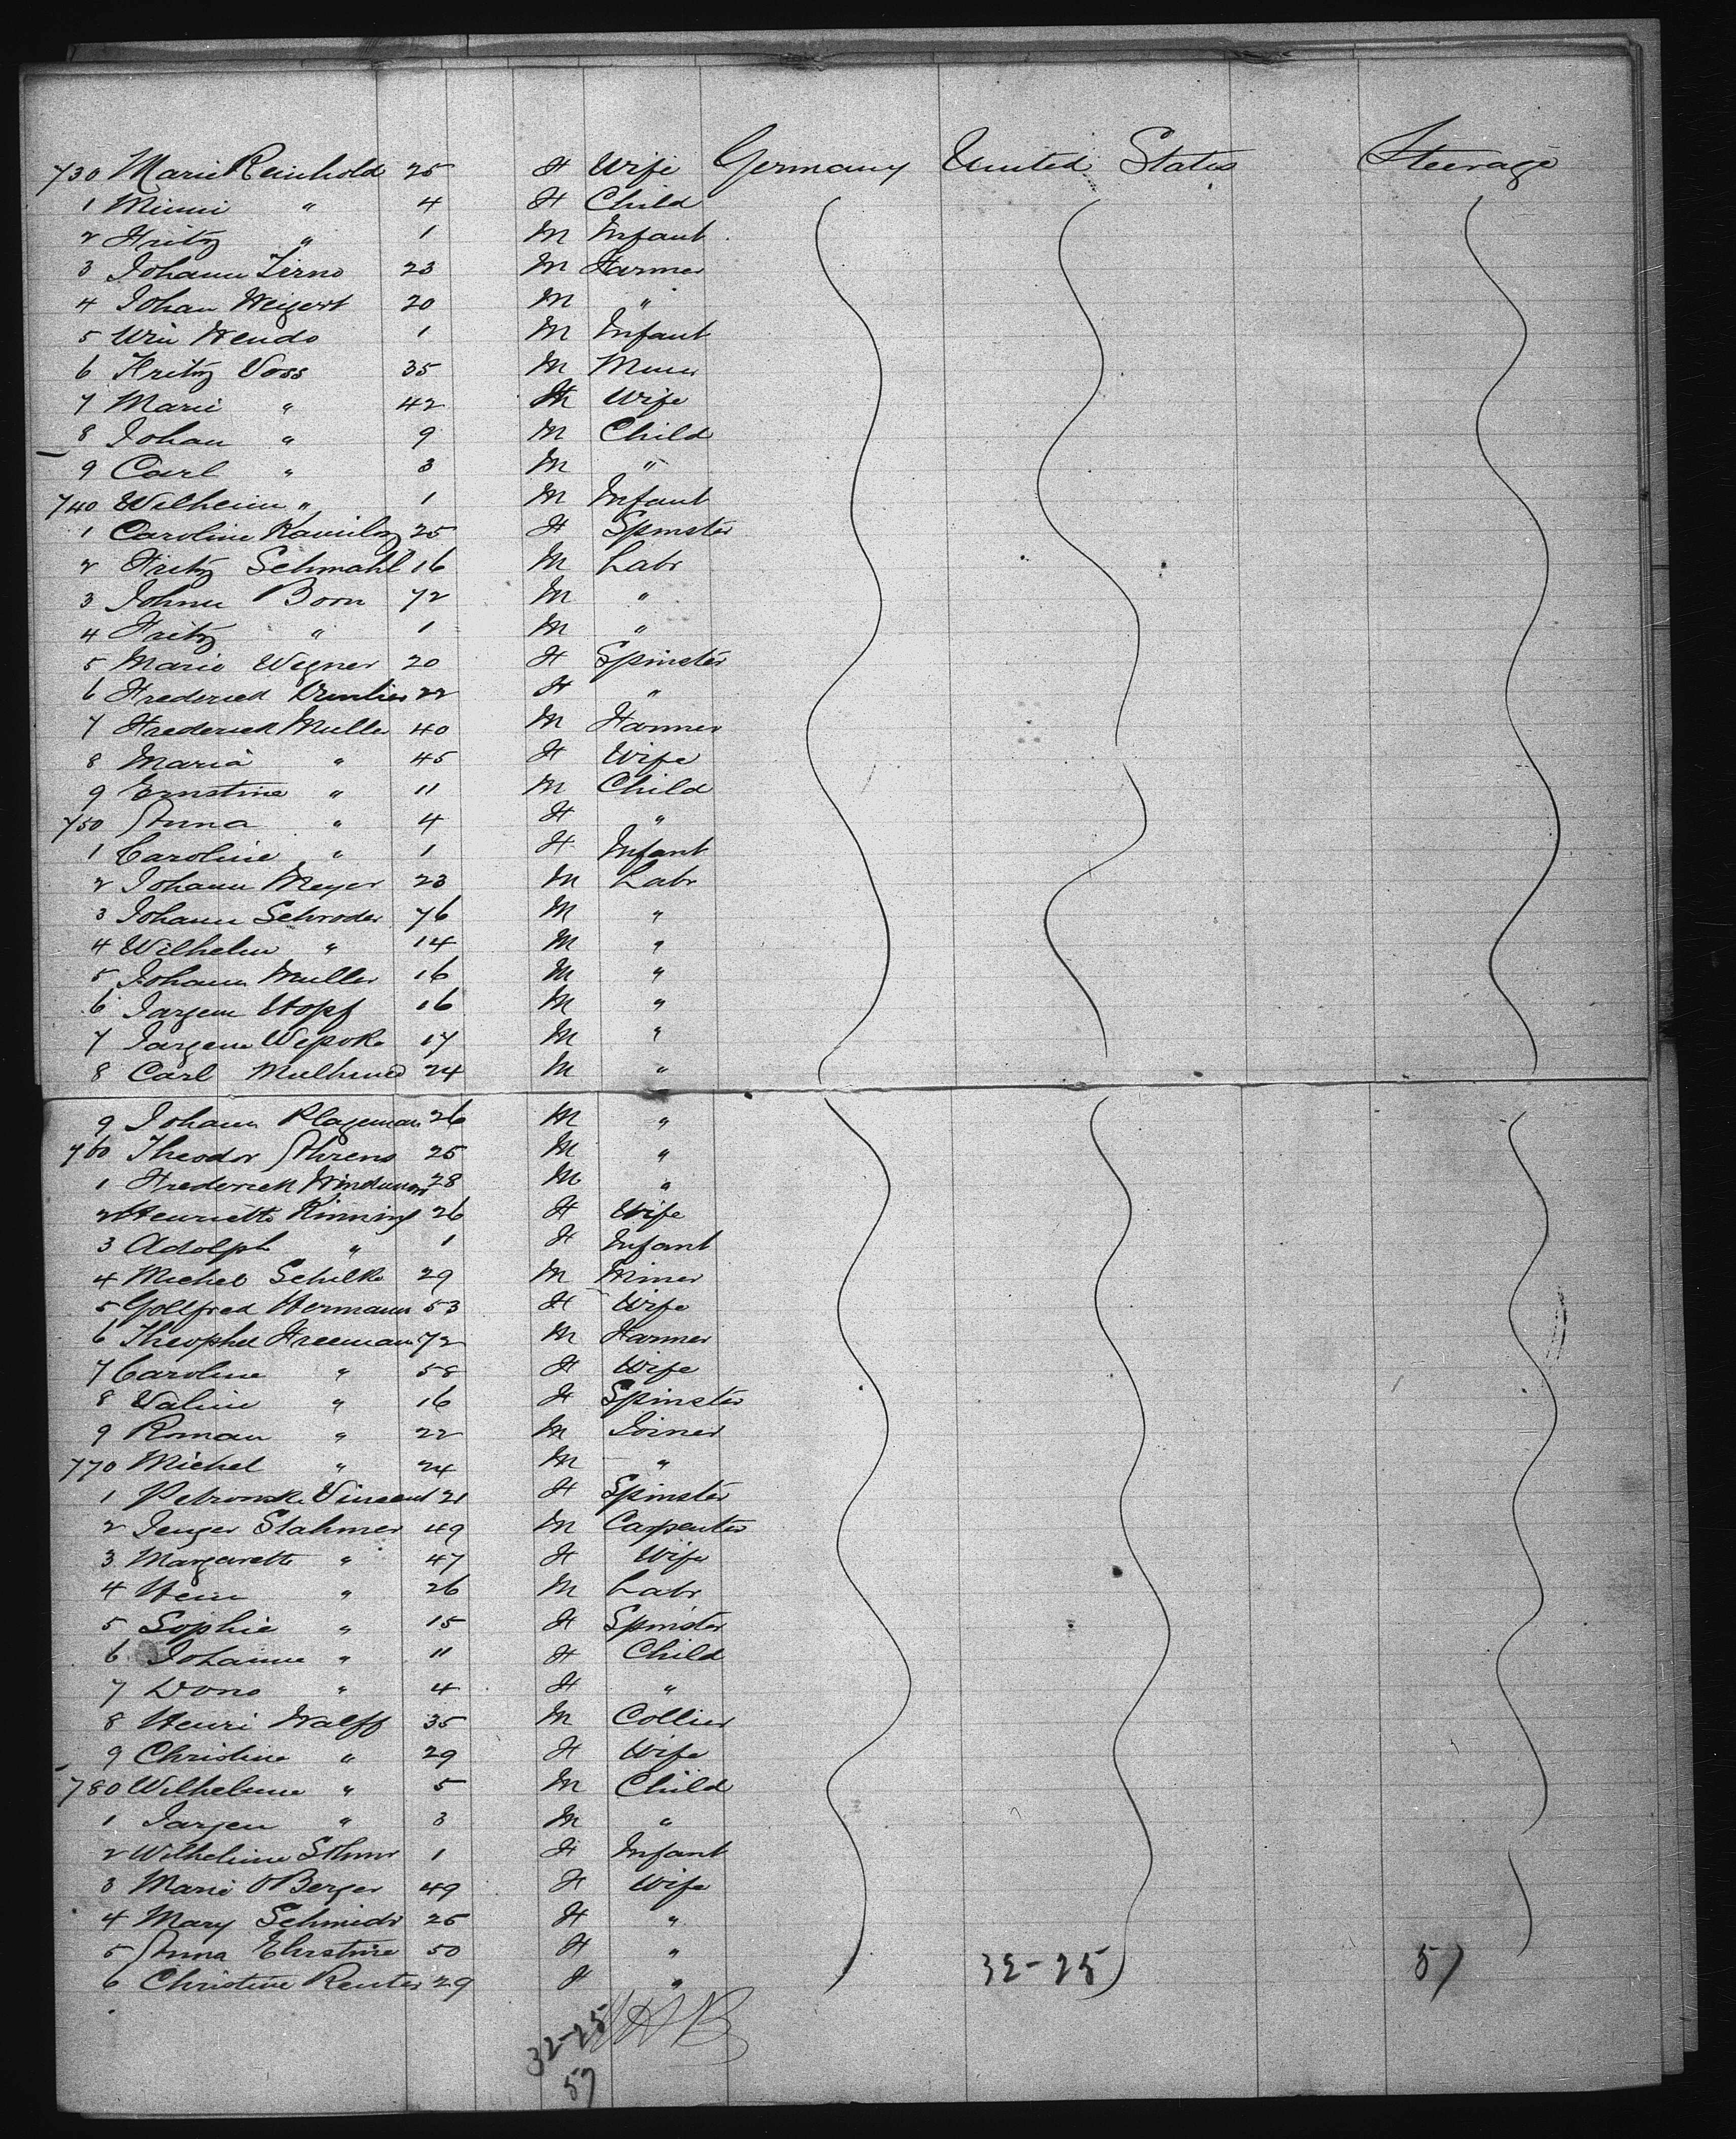 730 Marie Reinhold 25 F Wife Germany United States Steerage
1 Minni " 4 F Child
2 Fritz " 1 M Infant
3 Johann Zirno 23 M Farmer
4 Johan Weigert 20 M "
5 Wm Wendo 1 M Infant
6 Fritz Voss 35 M Miner
7 Marie " 42 F Wife
8 Johan " 9 M Child
9 Carl " 3 M "
740 Wilheim " 1 M Infant
1 Caroline 25 F Spinster
2 Fritz Schmahl 16 M Labr
3 Johnn Born 72 M "
4 Fritz " 1 M "
5 Marie Wegner 20 F Spinster
6 Frederick 22 F "
7 Frederick Muller 40 M Farmer
8 Maria " 45 F Wife
9 Ernstine " 11 M Child
750 Anna " 4 F "
1 Caroline " 1 F Infant
2 Johann Meyer 23 M Labr
3 Johann Schroder 76 M "
4 Wilhelm " 14 M "
5 Johann Muller 16 M "
6 Jargen Hopf 16 M "
7 Jargen Wepoke 17 M "
8 Carl 24 M "
9 Johann Plageman 26 M "
760 Theodor Ahrens 25 M "
1 Frederick 28 M "
2 Henriette Kinning 26 F Wife
3 Adolph " 1 F Infant
4 Michel Schilke 29 M Miner
5 Gollfred Hermann 53 F Wife
6 Theophel Freeman 72 M Farmer
7 Caroline " 58 F Wife
8 Valine " 16 F Spinster
9 Roman " 22 M Joiner
770 Michel " 24 M "
1 Vincent 21 F Spinster
2 Jenger Stahmer 49 M Carpenter
3 Margarette " 47 F Wife
4 Hein " 26 M Labr
5 Sophie " 15 F Spinster
6 Johanne " 11 F Child
7 Dono " 4 F "
8 Henri Walff 35 M Collier
9 Christine " 29 F Wife
780 Wilhelmne " 5 M Child
1 Jargen " 3 M "
2 Wilhelmine 1 F Infant
3 Marie OBerger 49 F Wife
4 Mary Schmidt 25 F "
5 Anna Ehrstine 50 F "
32-25 57
6 Christine Reuter 29 F "
32-25
57